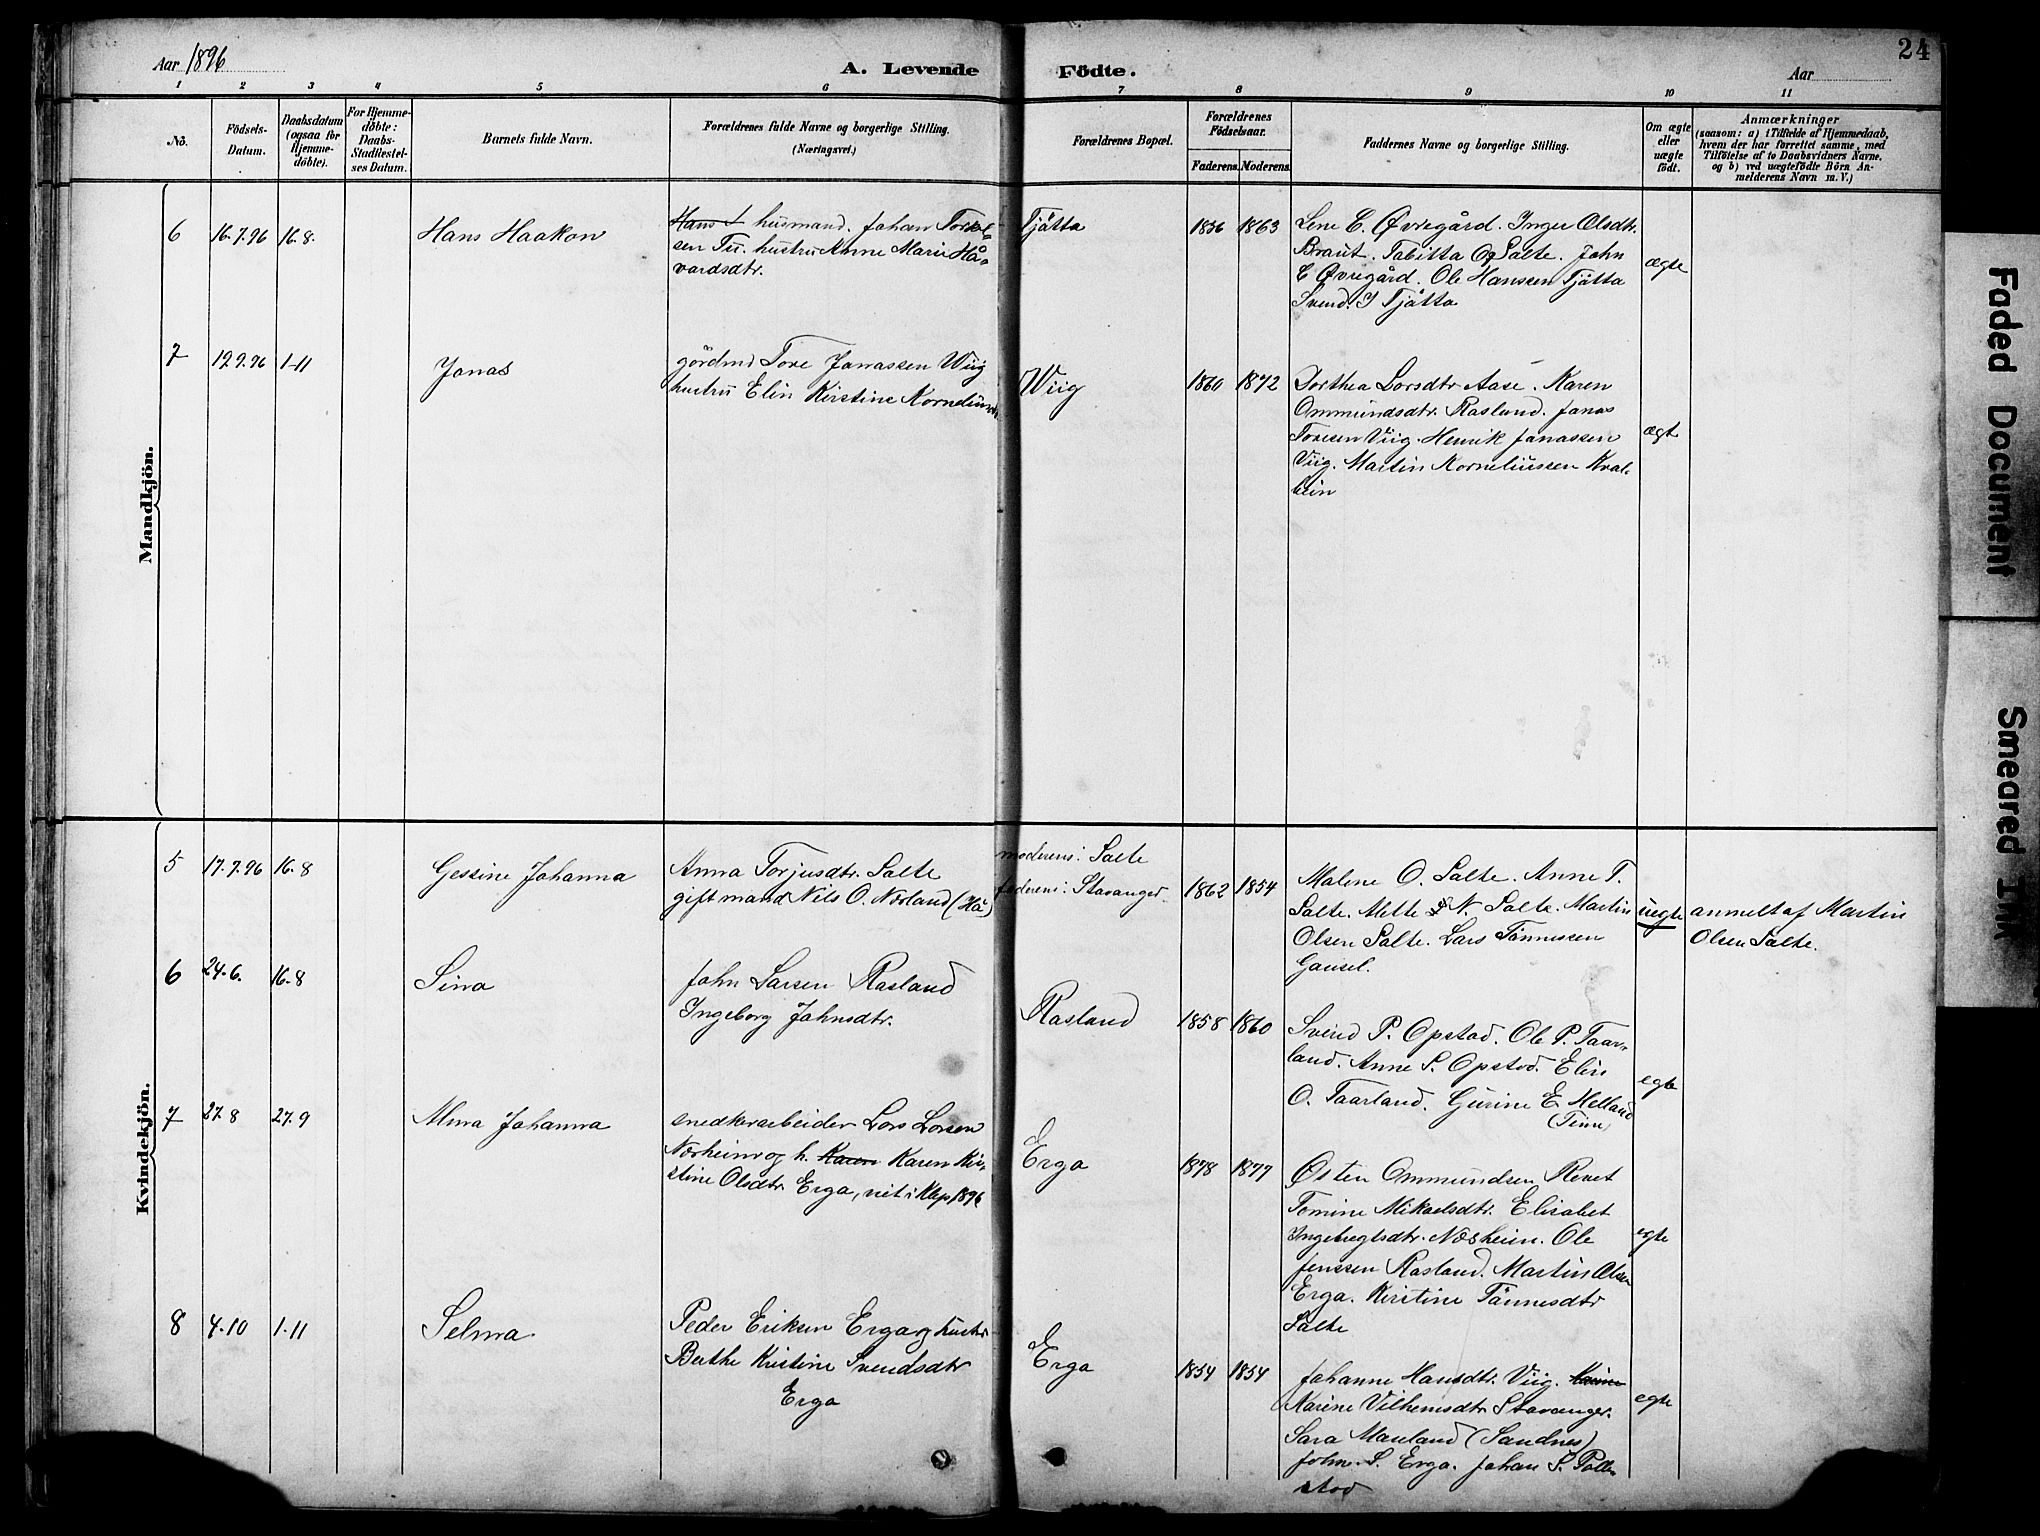 Aar 1896
A. Levende Födte.
Aar
24
1 2 3 4 5 6 7 8 9 10 11
No.
Födsels-
Datum.
Daabsdatum
(ogsaa for
Hjemme-
döbte).
For Hjemme-
döbte:
Daabs-
Stadfestel-
ses Datum.
Barnets fulde Navn.
Forældrenes fulde Navne og borgerlige Stilling.
(Næringsvei.)
Forældrenes Bopæl.
Forældrenes
Födselsaar.
Faderens. Moderens.
Faddernes Navne og borgerlige Stilling.
Om ægte
eller
uægte
födt.
Anmærkninger
(saasom: a) i Tilfælde af Hjemmedaab,
hvem der har forrettet samme, med
Tilföielse af to Daabsvidners Navne.
og b) ved uægtefödte Börn An-
melderens Navn m. V.)
Mandkjön.
6 16.7.96 16.8.
Hans Haakon
Hans husmand. Johan Torkel-
sen Tu. hustru Anne Marie Hå-
vardsdtr.
Tjåtta
1856 1863
Lene E. Øvregård. Inger Olsdtr.
Braut. Tabitta O Salte. John
E Øvregård. Ole Hanssen Tjåtta
Svend. I Tjåtta
ægte
7 19.9.96 1-11
Jonas
gårdmd Tore Jonassen Wiig
hustru Elin Kirstine Kornelius
Wiig
1860 1872
Dorthea Larsdtr Aase. Karen
Ommundsdtr. Rasland. Jonas
Toresen Viig. Henrik Jonassen
Viig. Martin Korneliussen Kval-
bein
ægt
Kvindekjön.
5 17.7.96 16-8
Gessine Johanna
Anna Torjusdtr. Salte
gift mand Nils O. Nærland (Hå)
moderens: Salte
faderens: Stavanger.
1862 1854
Malene O. Salte. Anne T.
Salte. Mette N. Salte. Martin
Olsen Salte. Lars Tønnessen
Gausel.
uegte
anmelt af Martin
Olsen Salte.
6 24.6. 16-8
Sina
John Larsen Rasland
Ingeborg Johnsdtr.
Rasland
1858 1860
Svend P. Opstad. Ole P. Taar-
land. Anne S. Opstad. Elin
O. Taarland. Gurine E Helland
(Time)
egte
7 27.8 27.9
Alma Johanna
snedkerarbeider Lars Larsen
Næsheim og h. Karen Karen Kir-
stine Olsdtr Erga, viet i Klep 1896
Erga
1878 1877
Østen Ommundsen Revet
Tomine Mikaelsdtr. Elisabet
Ingebregtsdtr. Næsheim. Ole
Jenssen Rasland. Martin Olsen
Erga. Kirstine Tønnesdtr
Salte
egte
8 4.10 1.11
Selma
Peder Eriksen Erga og hustr
Berthe Kristine Svendsdtr
Erga
Erga
1854 1854
Johanne Hansdtr. Viig. Karine
Karine Vilhemsdtr Stavanger.
Sara Mauland (Sandnes)
John. S. Erga. Johan S. Polle-
stad
egte
Faded Document
Smeared Ink